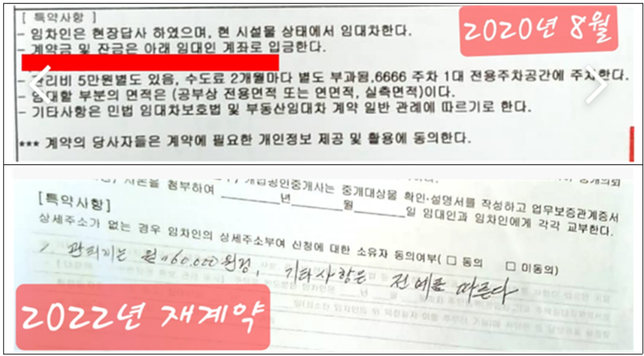 [ 특약사항 ]
- 임차인은 현장답사 하였으며, 현 시설물 상태에서 임대차한다.
- 계약금 및 잔금은 아래 임대인 계좌로 입금한다.
2020년 8월
리비 5만원별도 있음, 수도료 2개월마다 별도 부과됨,6666 주차 1대 전용주차공간에 주차한다.
- 임대할 부분의 면적은 (공부상 전용면적 또는 연면적, 실측면적)이다.
- 기타사항은 민법 임대차보호법 및 부동산임대차 계약 일반 관례에 따르기로 한다.
*** 계약의 당사자들은 계약에 필요한 개인정보 제공 및 활용에 동의한다.
사본을 첨부하여 년 월 일 임대인과 임차인에게 각각 교부한다.
개업공인중개사는 중개대상물 확인·설명서를 작성하고 업무보증관계증서
[특약사항]
상세주소가 없는 경우 임차인의 상세주소부여 신청에 대한 소유자 동의여부( □ 동의 □ 미동의)
관리비는 월 60,000원정, 기타사항은 전례를 따른다
2022년 재계약